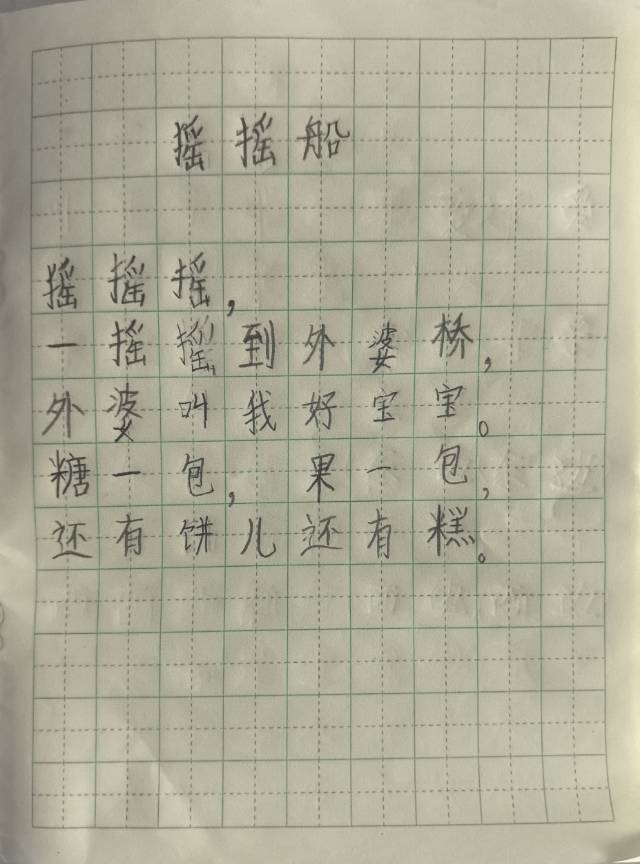 摇摇船
摇摇摇，
一摇摇到外婆桥，
外婆叫我好宝宝。
糖一包，果一包，
还有饼儿还有糕。